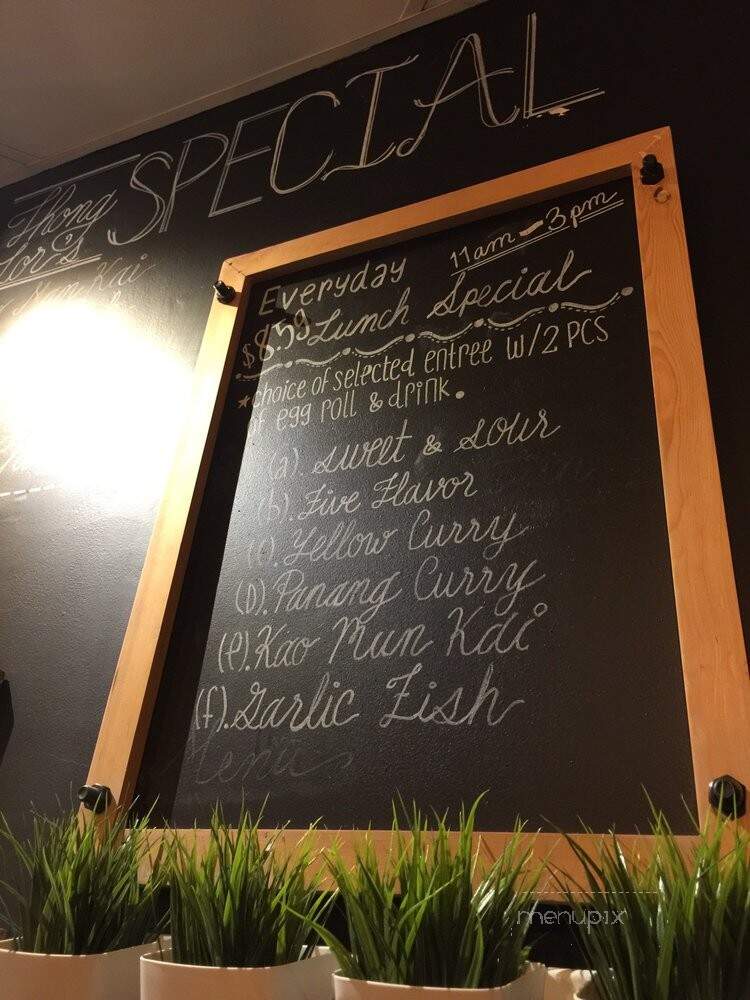 SPECIAL
Thong
Lor's
Mun Kai
Everyday 11am - 3pm
$8.59 Lunch Special
choice of selected entree w/2 PCS
of egg roll & drink.
(a). sweet & sour
(b). Five Flavor
(c). Yellow Curry
(D). Panang Curry
(e). Kao Mun Kai
(f). Garlic Fish
Menu
menupix